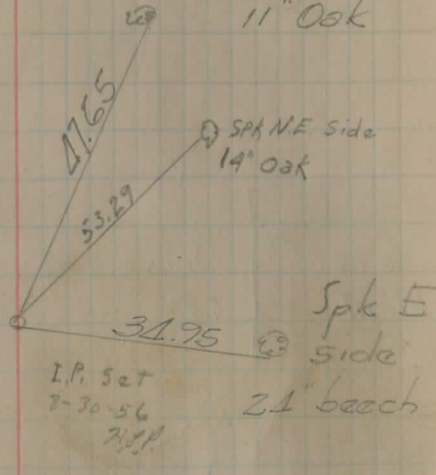 11" Oak
47.65
Spk N.E. Side
14" Oak
53.29
34.95
Spk E
side
21" beech
I.P. Set
8-30-56